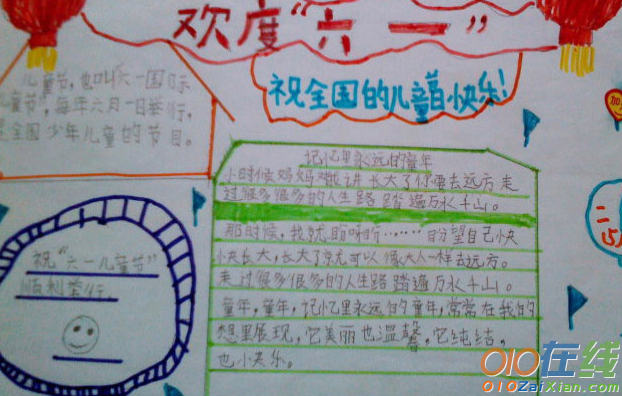 欢度“六一”
祝全国的儿童节快乐！
儿童节，也叫六一国际
儿童节”，每年六月一日举行，
是全国少年儿童的节日。
记忆里永远的童年
小时候妈妈对我讲长大了你要去远方走
过很多很多的人生路踏遍万水千山。
那时候，我就盼呀盼……盼望自己快
快长大，长大了就可以像大人一样去远方。
走过很多很多的人生路踏遍万水千山。
童年，童年，记忆里永远的童年，常常在我的
想里展现，它美丽也温馨，它纯洁，
也快乐。
祝“六一儿童节”
顺利举行。
010在线
010ZaiXian.com